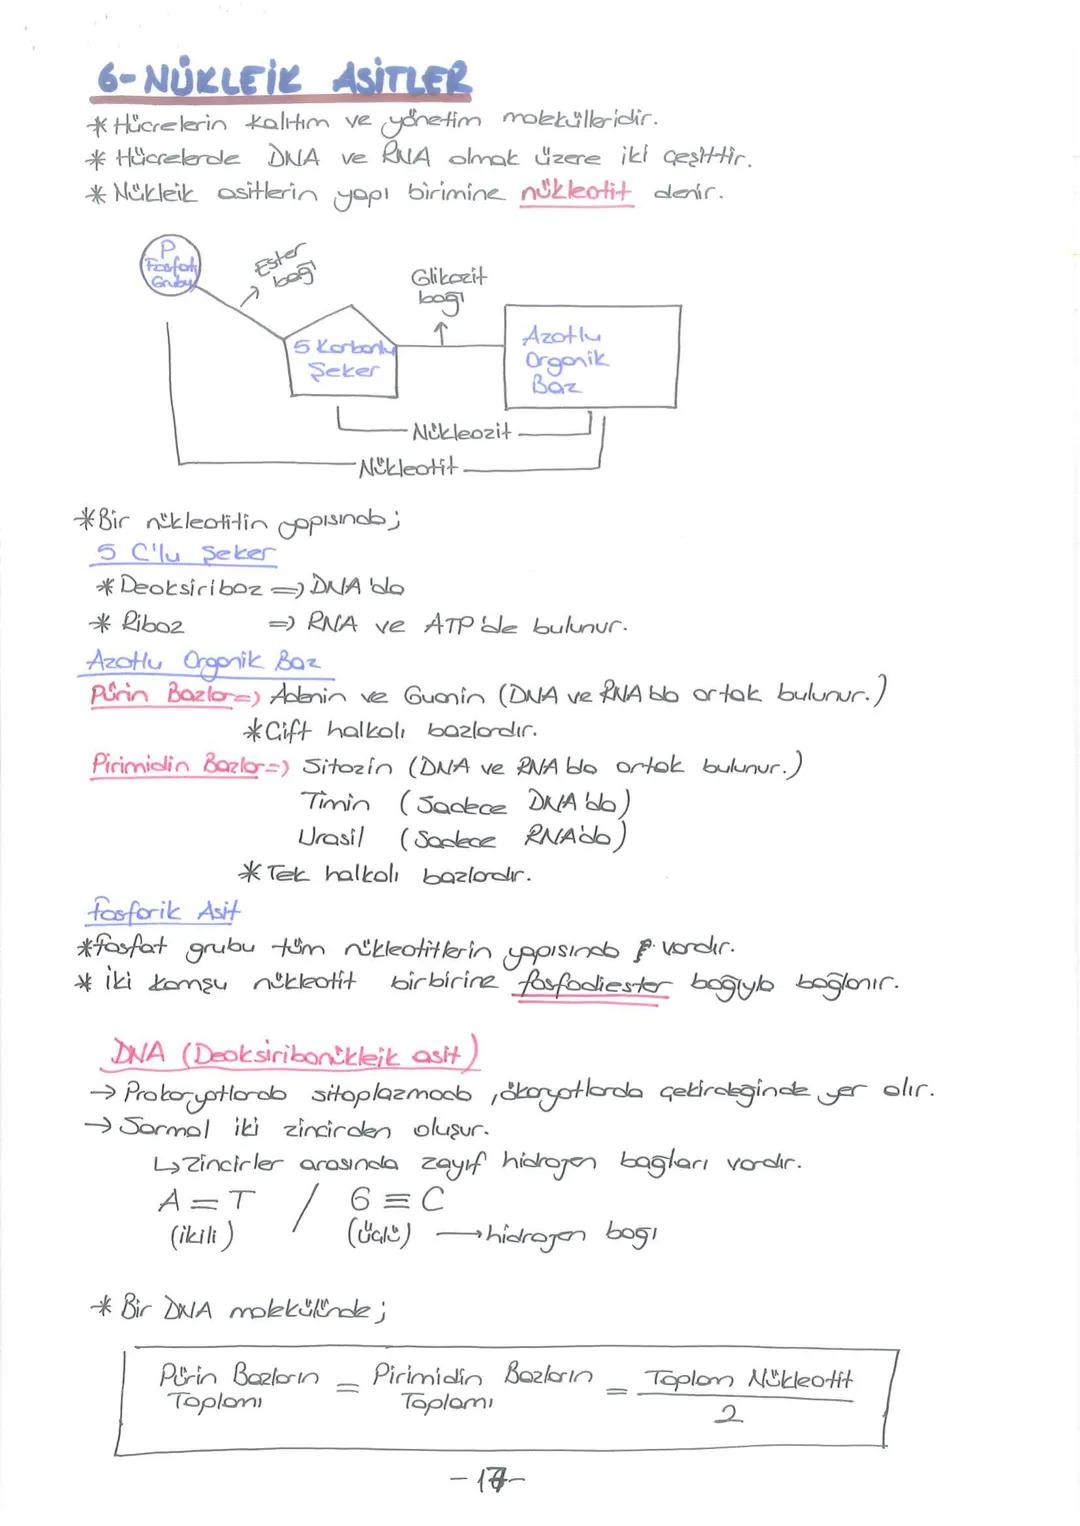 6- NÜKLEİK ASİTLER
* Hücrelerin kalıtım ve yönetim molekülleridir.
* Hücrelerde DNA ve RNA olmak üzere iki çeşittir.
* Nükleik asitlerin yapı birimine nükleotit denir.
P
Fosfat
Grubu
Ester
bağı
Glikozit
bağı
5 Karbonlu
Şeker
Azotlu
Organik
Baz
Nükleozit
Nükleotit
* Bir nükleotitin yapısında;
5 C'lu Şeker
* Deoksiriboz => DNA'da
* Riboz => RNA ve ATP'de bulunur.
Azotlu Organik Baz
Pürin Bazlar => Adenin ve Guanin (DNA ve RNA'da ortak bulunur.)
* Çift halkalı bazlardır.
Pirimidin Bazlar => Sitozin (DNA ve RNA'da ortak bulunur.)
Timin (Sadece DNA'da)
Urasil (Sadece RNA'da)
* Tek halkalı bazlardır.
Fosforik Asit
* Fosfat grubu tüm nükleotitlerin yapısında vardır.
* İki komşu nükleotit birbirine fosfodiester bağıyla bağlanır.
DNA (Deoksiribonükleik asit)
→ Prokaryotlarda sitoplazmada, ökaryotlarda çekirdeğinde yer alır.
→ Sarmal iki zincirden oluşur.
↳ Zincirler arasında zayıf hidrojen bağları vardır.
A = T / G ≡ C
(ikili) (üçlü) → hidrojen bağı
* Bir DNA molekülünde;
Pürin Bazların = Pirimidin Bazların = Toplam Nükleotit
Toplamı Toplamı 2
-17-